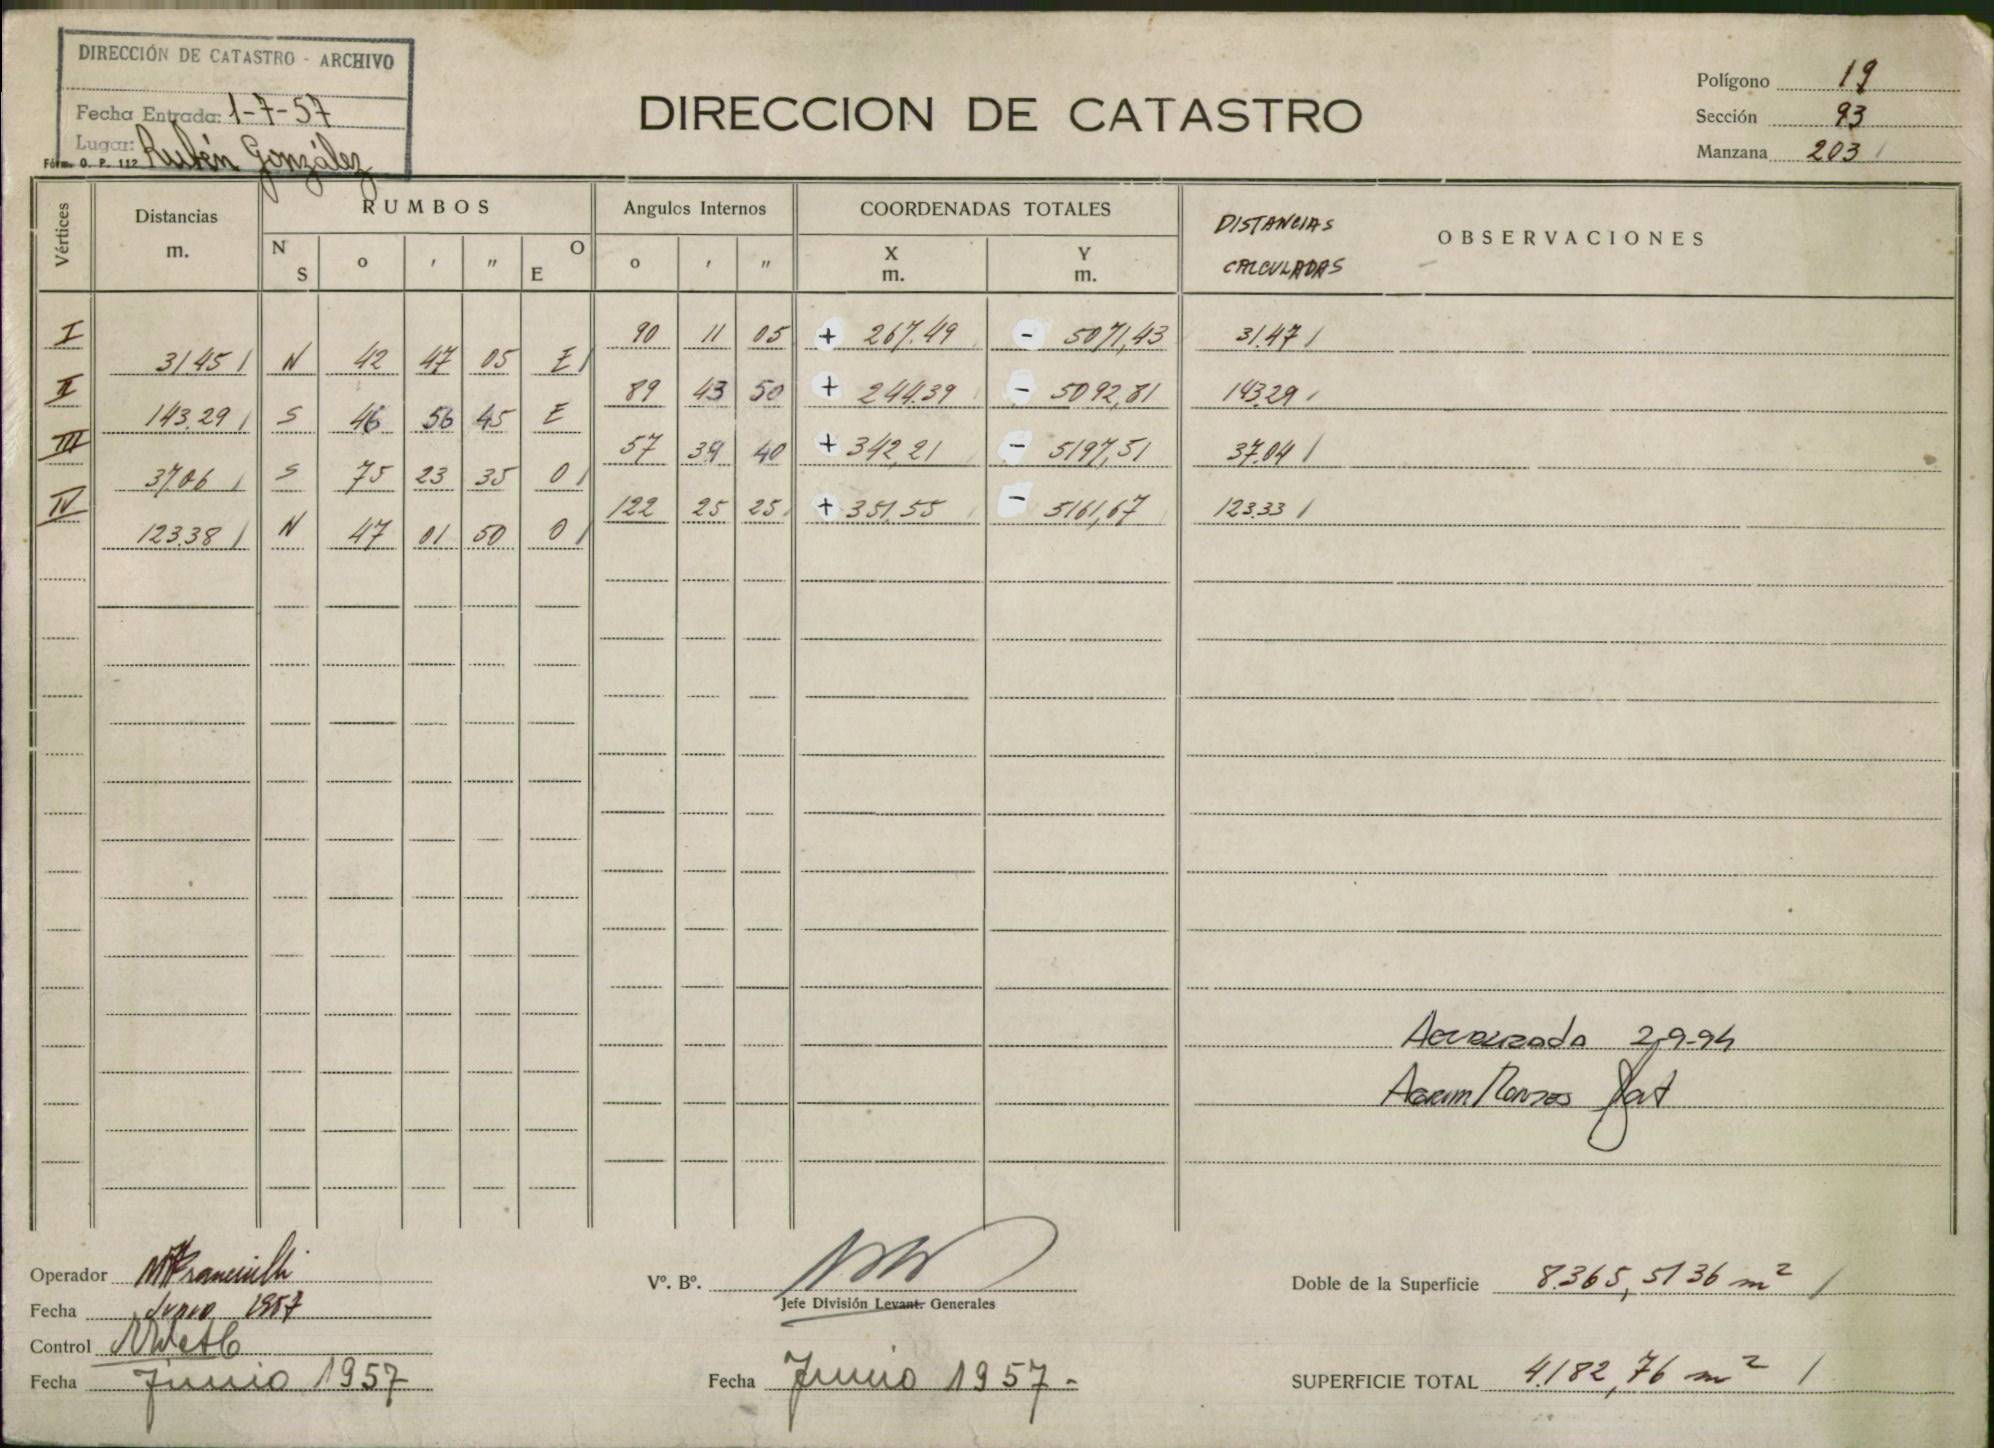 DIRECCIÓN DE CATASTRO - ARCHIVO
Fecha Entrada: 1-7-57
Lugar: Rubén González
Fórm. O. P. 112
DIRECCION DE CATASTRO
Polígono 19
Sección 93
Manzana 203
Vértices
Distancias m.
RUMBOS
N S o ' " O E
Angulos Internos
o ' "
COORDENADAS TOTALES
X m. Y m.
DISTANCIAS CALCULADAS
OBSERVACIONES
I 90 11 05 + 267.49 - 5071,43 31.47
31 45 N 42 47 05 E
II 89 43 50 + 244.39 - 5092,81 143.29
143.29 S 46 56 45 E
III 57 39 40 + 342,21 - 5197,51 37.04
37.06 S 75 23 35 O
IV 122 25 25 + 351.55 - 5161,67 123.33
123.38 N 47 01 50 O
2-9-94
Operador
Fecha Junio 1957
Control
Fecha Junio 1957
Vº. Bº.
Jefe División Levant. Generales
Fecha Junio 1957-
Doble de la Superficie 8.365,5136 m²
SUPERFICIE TOTAL 4.182,76 m²